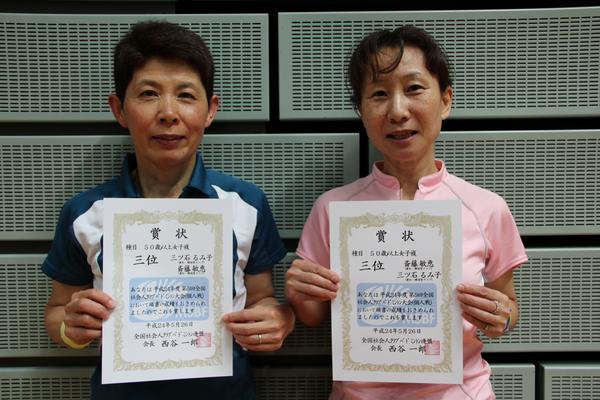 賞状
種目 50歳以上女子複
三位 三ツ石 るみ子
斎藤 敏恵
あなたは 平成24年度 第5回全国
社会人クラブバドミントン大会(個人戦)
において頭書の成績をおさめられ
ましたのでこれを賞します
平成24年5月26日
全国社会人クラブバドミントン連盟
会長 西谷 一郎
賞状
種目 50歳以上女子複
三位 斎藤 敏恵
三ツ石 るみ子
あなたは 平成24年度 第5回全国
社会人クラブバドミントン大会(個人戦)
において頭書の成績をおさめられ
ましたのでこれを賞します
平成24年5月26日
全国社会人クラブバドミントン連盟
会長 西谷 一郎